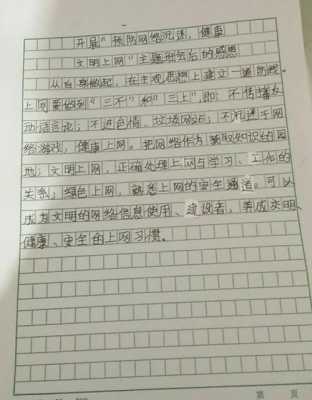 开展"预防网络沉迷,健康
文明上网"主题班会后的感想
从自身做起,在主观思想上建立一道防线。
上网要做到"三不"和"三上",即:不传播反
动谣言论;不进色情、垃圾网站;不沉迷于网
络游戏,健康上网。把网络作为获取知识的园
地;文明上网,正确处理上网与学习、工作的
关系;绿色上网,熟悉上网的安全通道。可以
成为文明的网络信息使用、建设者,养成文明、
健康、安全的上网习惯。
第 页